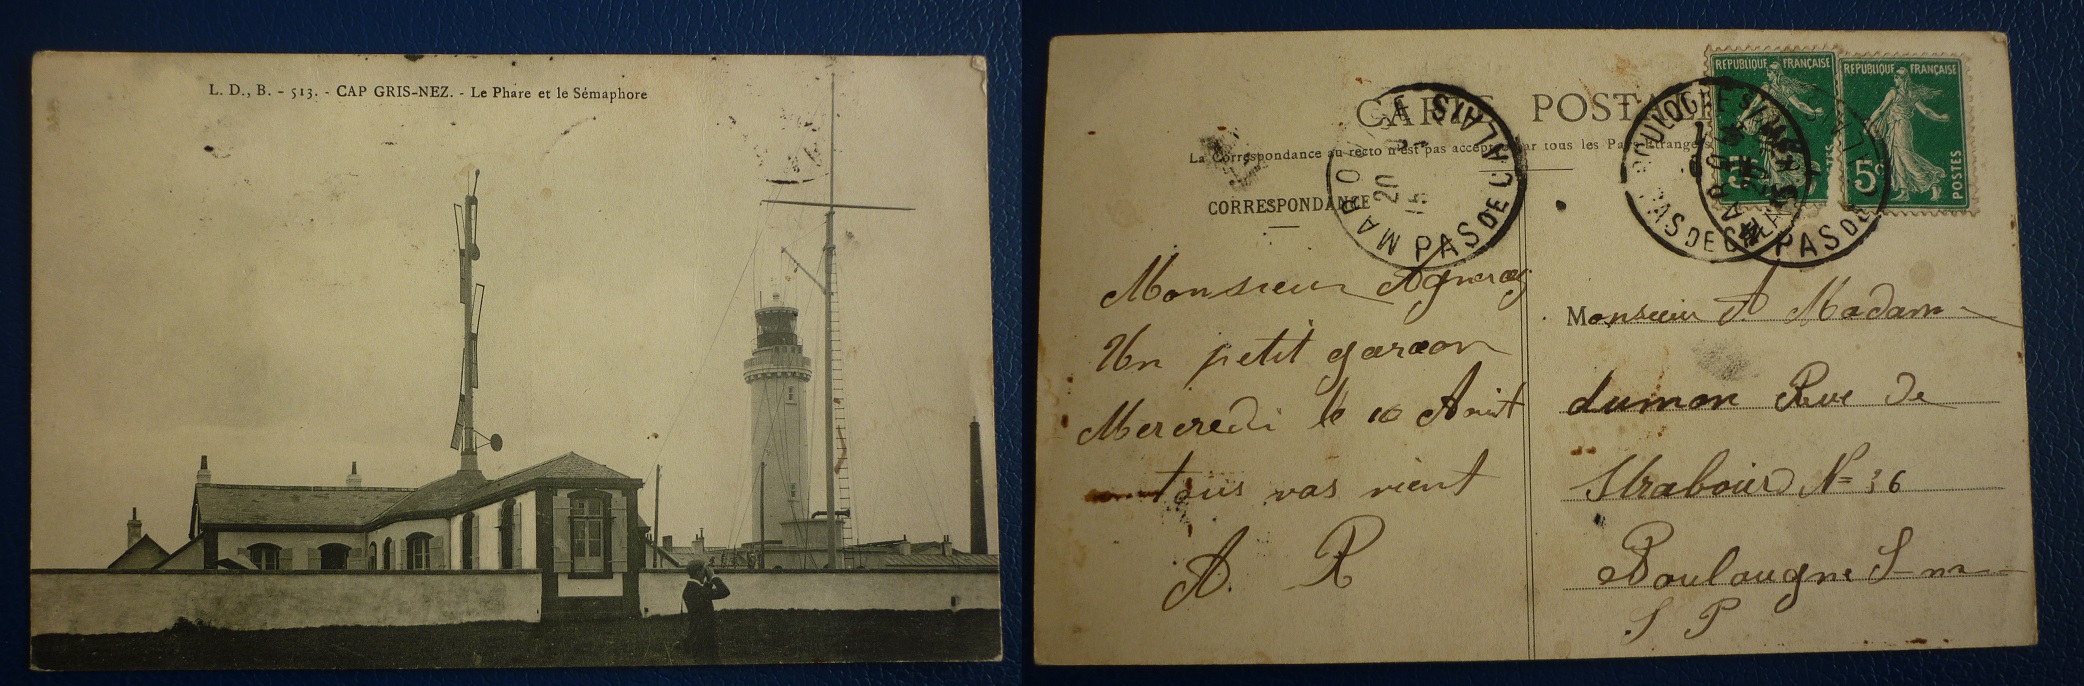 L. D., B. - 513. - CAP GRIS-NEZ. - Le Phare et le Sémaphore
CARTE POSTA
La Correspondance au recto n'est pas acceptée par tous les Pays Etrangers
CORRESPONDANCE
Monsieur Agneray
Un petit garcon
Mercredi le 10 Aout
tous vas vient
A. R
RÉPUBLIQUE FRANÇAISE
5c
POSTES
RÉPUBLIQUE FRANÇAISE
5c
POSTES
MARQUISE
PAS DE CALAIS
20
BOULOGNE S/MER
PAS DE CALAIS
PAS DE
Monsieur A Madam
dumon Rue De
Strabour N= 36
Boulougne S m
S P